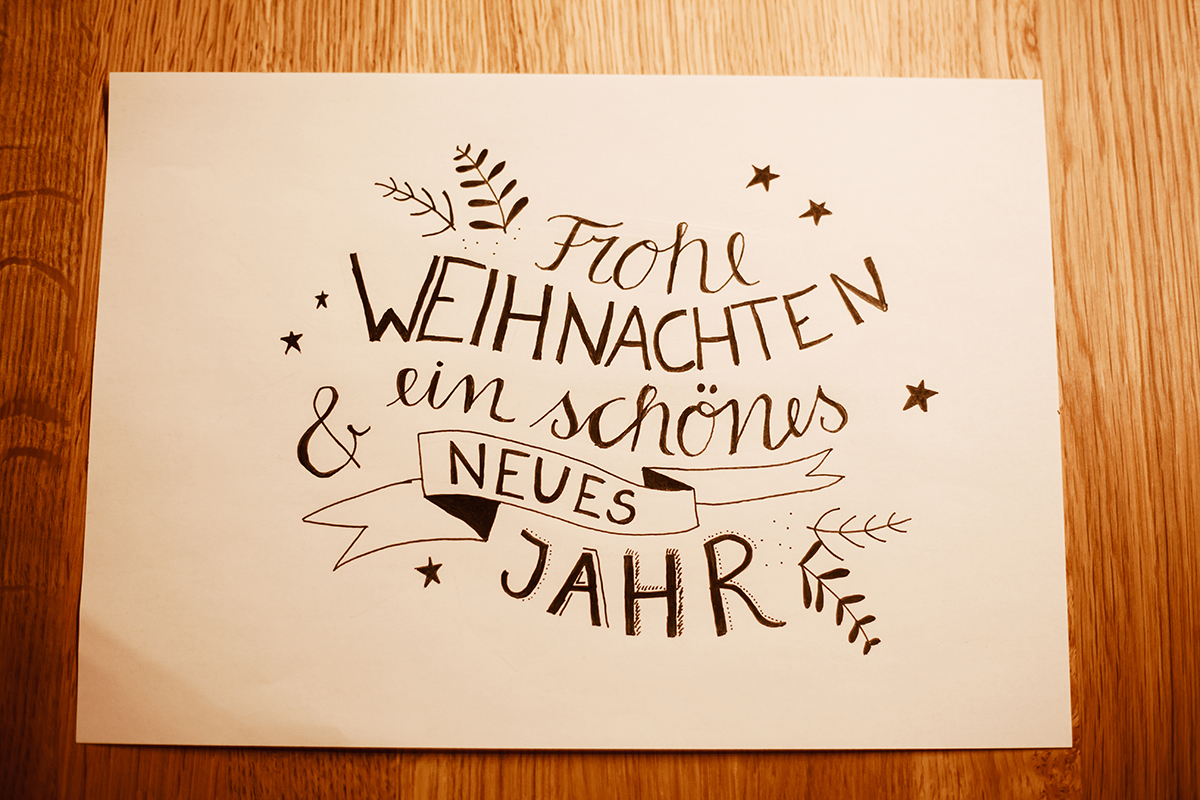 Frohe
WEIHNACHTEN
& ein schönes
NEUES
JAHR